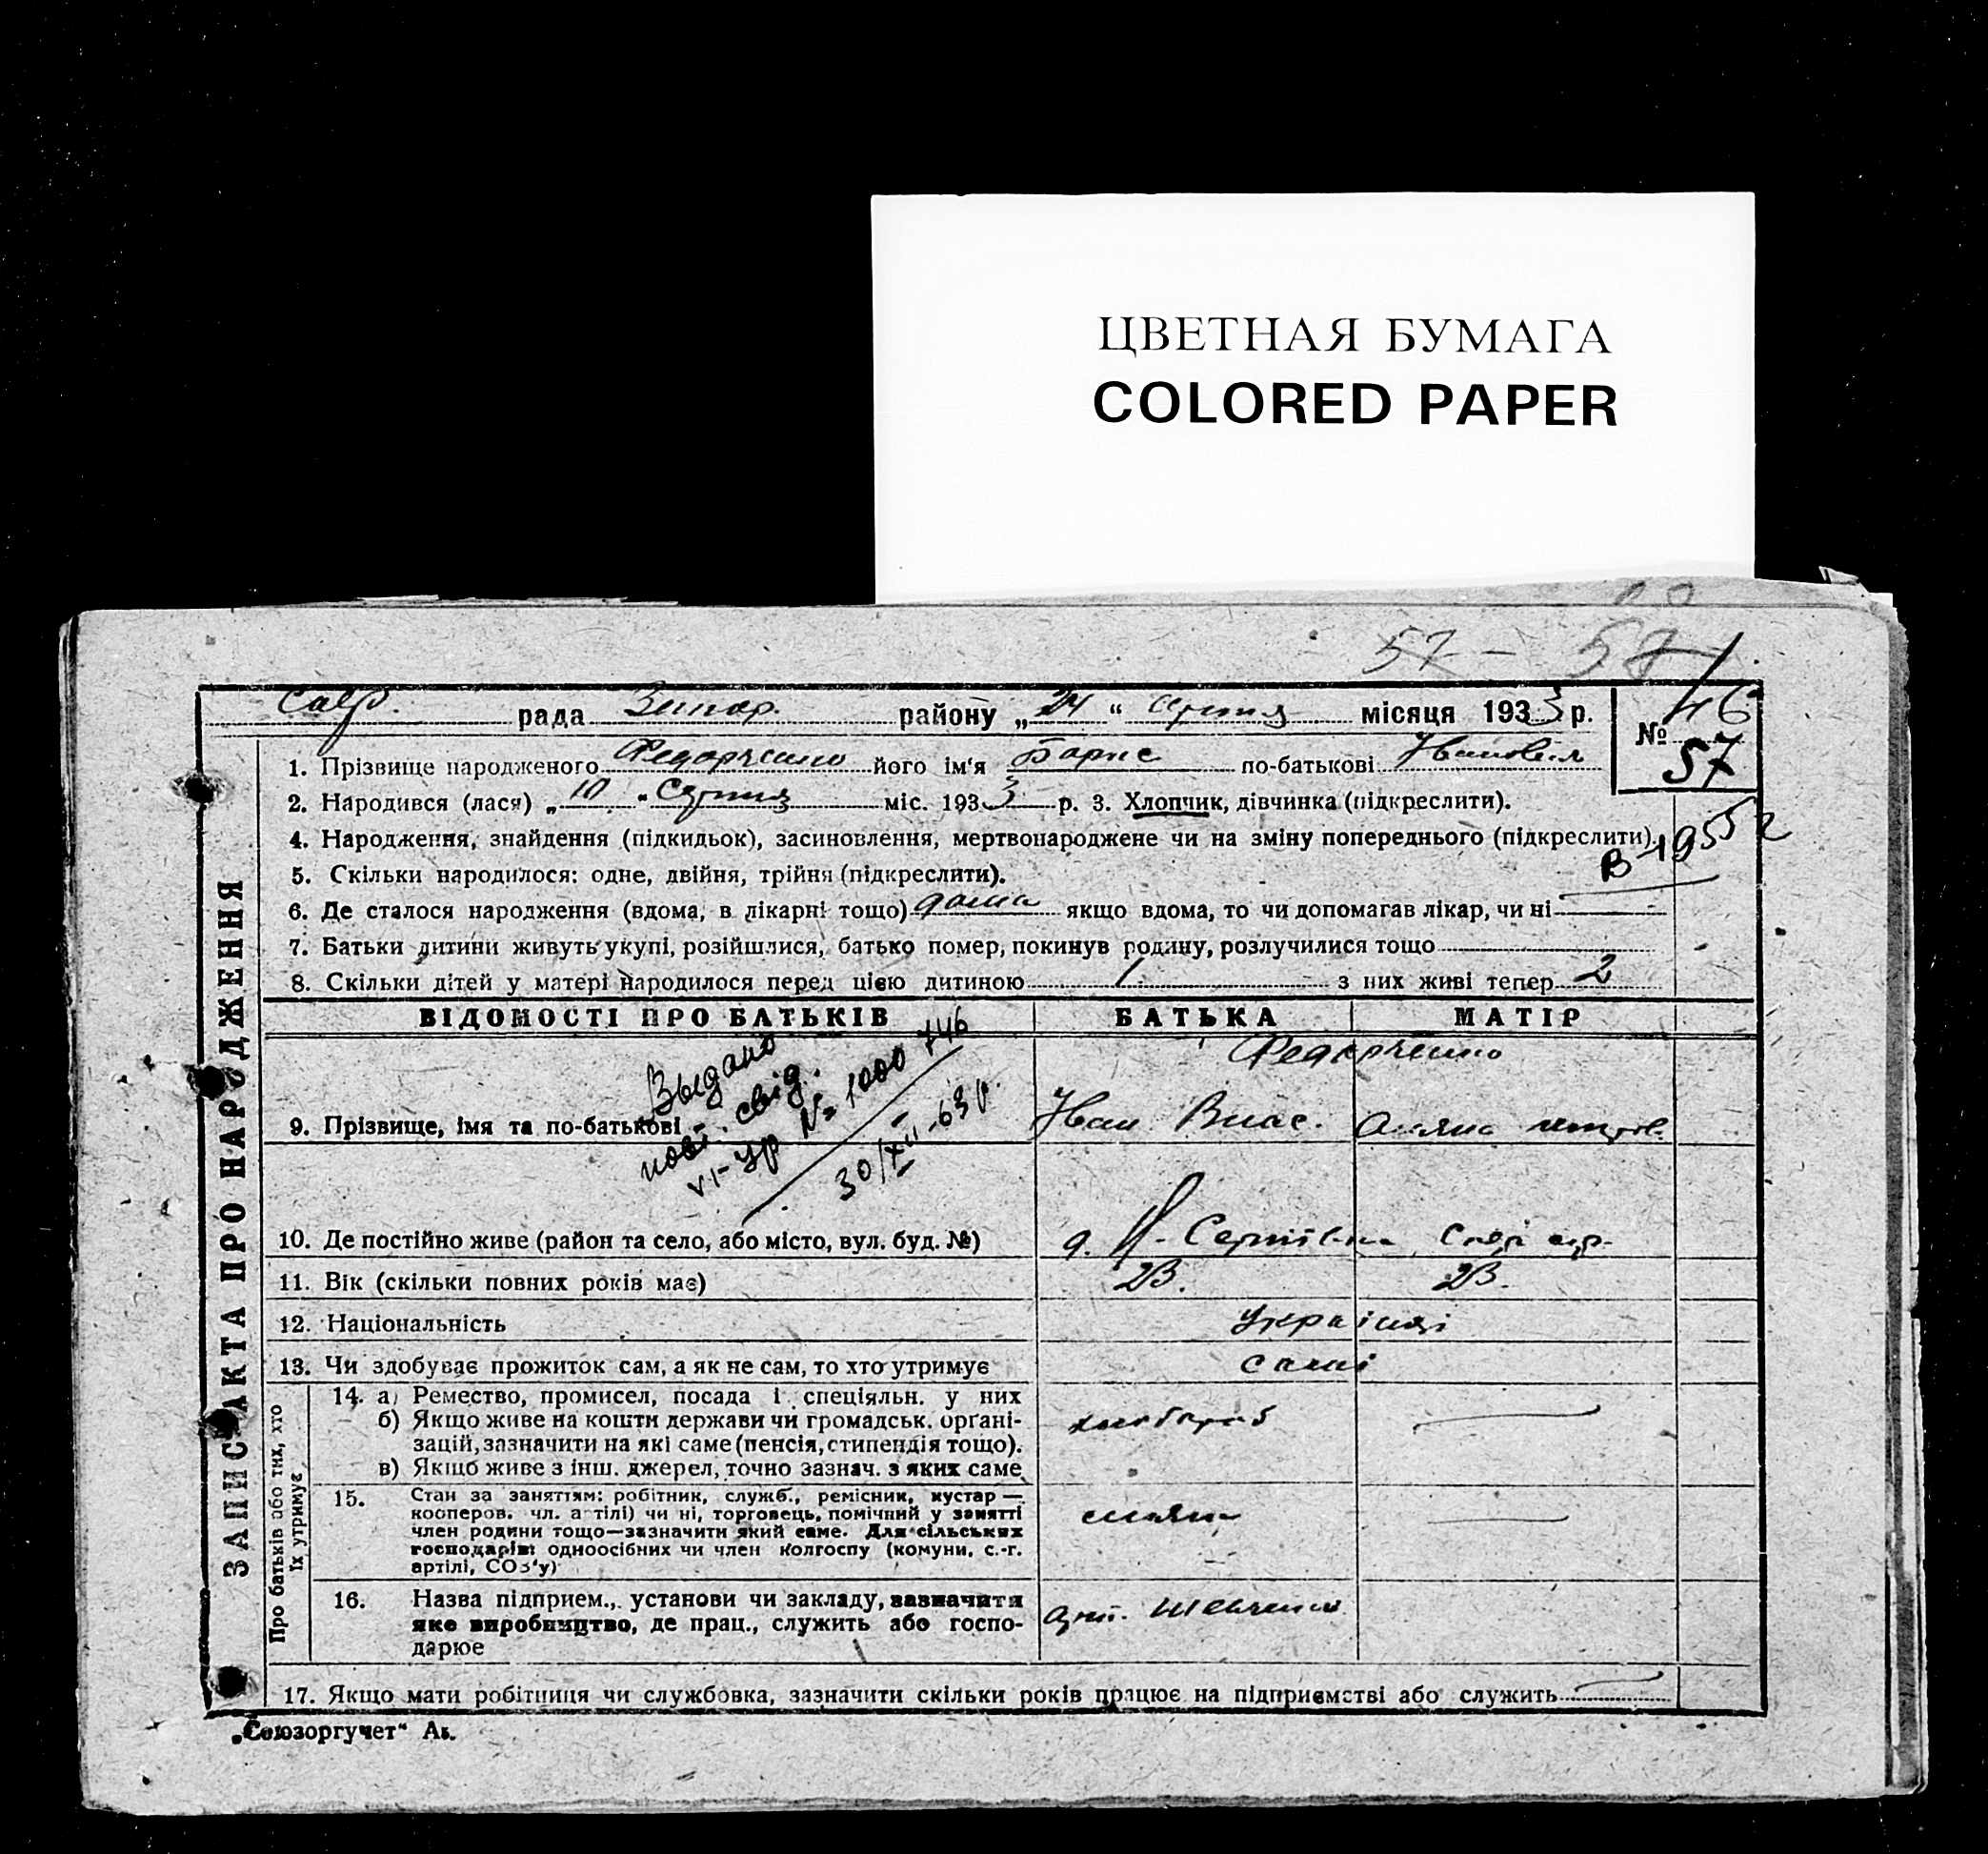 ЦВЕТНАЯ БУМАГА
COLORED PAPER
57 - 57
рада района „24“ серпня місяця 1933 р. № 46
57
1. Прізвище народженого Федорченко його ім'я Борис по-батькові Іванович
2. Народився (лася) „10“ Серпня міс. 1933 р. 3. Хлопчик, дівчинка (підкреслити).
4. Народження, знайдення (підкидьок), засиновлення, мертвонароджене чи на зміну попереднього (підкреслити).
5. Скільки народилося: одне, двійня, трійня (підкреслити).
6. Де сталося народження (вдома, в лікарні тощо) дома якщо вдома, то чи допомагав лікар, чи ні
7. Батьки дитини живуть укупі, розійшлися, батько помер, покинув родину, розлучилися тощо
8. Скільки дітей у матері народилося перед цією дитиною 1 з них живі тепер 2
ВІДОМОСТІ ПРО БАТЬКІВ БАТЬКА МАТІР
Федорченко
9. Прізвище, імя та по-батькові Іван Влас.
Выдано
повт. свід.
№ 1000446
30/XII-63 р.
10. Де постійно живе (район та село, або місто, вул. буд. №)
11. Вік (скільки повних років має) 23. 23.
12. Національність Українці
13. Чи здобуває прожиток сам, а як не сам, то хто утримує самі
14. а) Ремество, промисел, посада і спеціяльн. у них
б) Якщо живе на кошти держави чи громадськ. органі-
зацій, зазначити на які саме (пенсія, стипендія тощо).
в) Якщо живе з інш. джерел, точно зазнач. з яких саме
хлібороб
15. Стан за заняттям: робітник, служб., ремісник, кустар —
кооперов. чл. артілі) чи ні, торговець, помічний у занятті
член родини тощо—зазначити який саме. Для сільських
господарів: одноосібних чи член колгоспу (комуни, с.-г.
артілі, СОЗ'у)
16. Назва підприєм., установи чи закладу, зазначити
яке виробництво, де прац., служить або госпо-
дарює
арт. Шевченко
17. Якщо мати робітниця чи службовка, зазначити скільки років працює на підприємстві або служить
ЗАПИС АКТА ПРО НАРОДЖЕННЯ
Про батьків або тих, хто
їх утримує
„Союзоргучет“